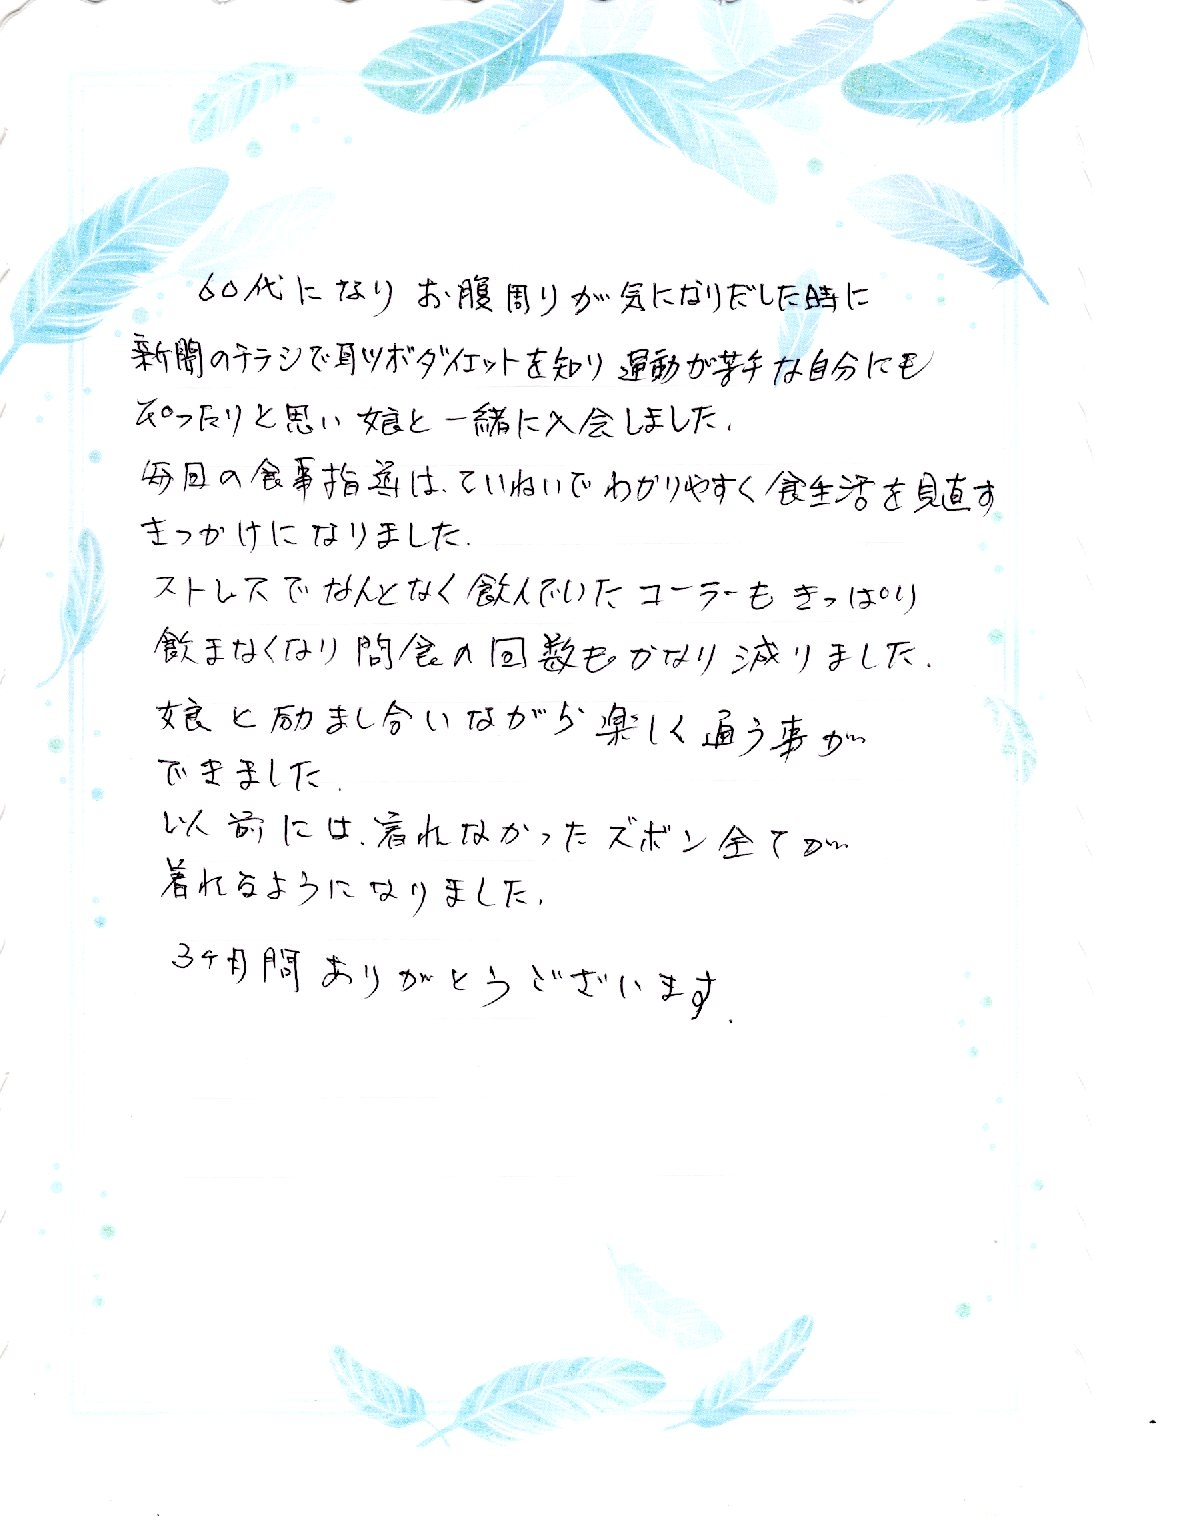 60代になりお腹周りが気になりだした時に
新聞のチラシで耳ツボダイエットを知り運動が苦手な自分にも
ぴったりと思い娘と一緒に入会しました.
毎回の食事指導は、ていねいでわかりやすく食生活を見直す
きっかけになりました.
ストレスでなんとなく飲んでいたコーラーもきっぱり
飲まなくなり間食の回数もかなり減りました.
娘と励まし合いながら楽しく通う事が
できました.
以前には、着れなかったズボン全てが
着れるようになりました.
3ヶ月間ありがとうございます.